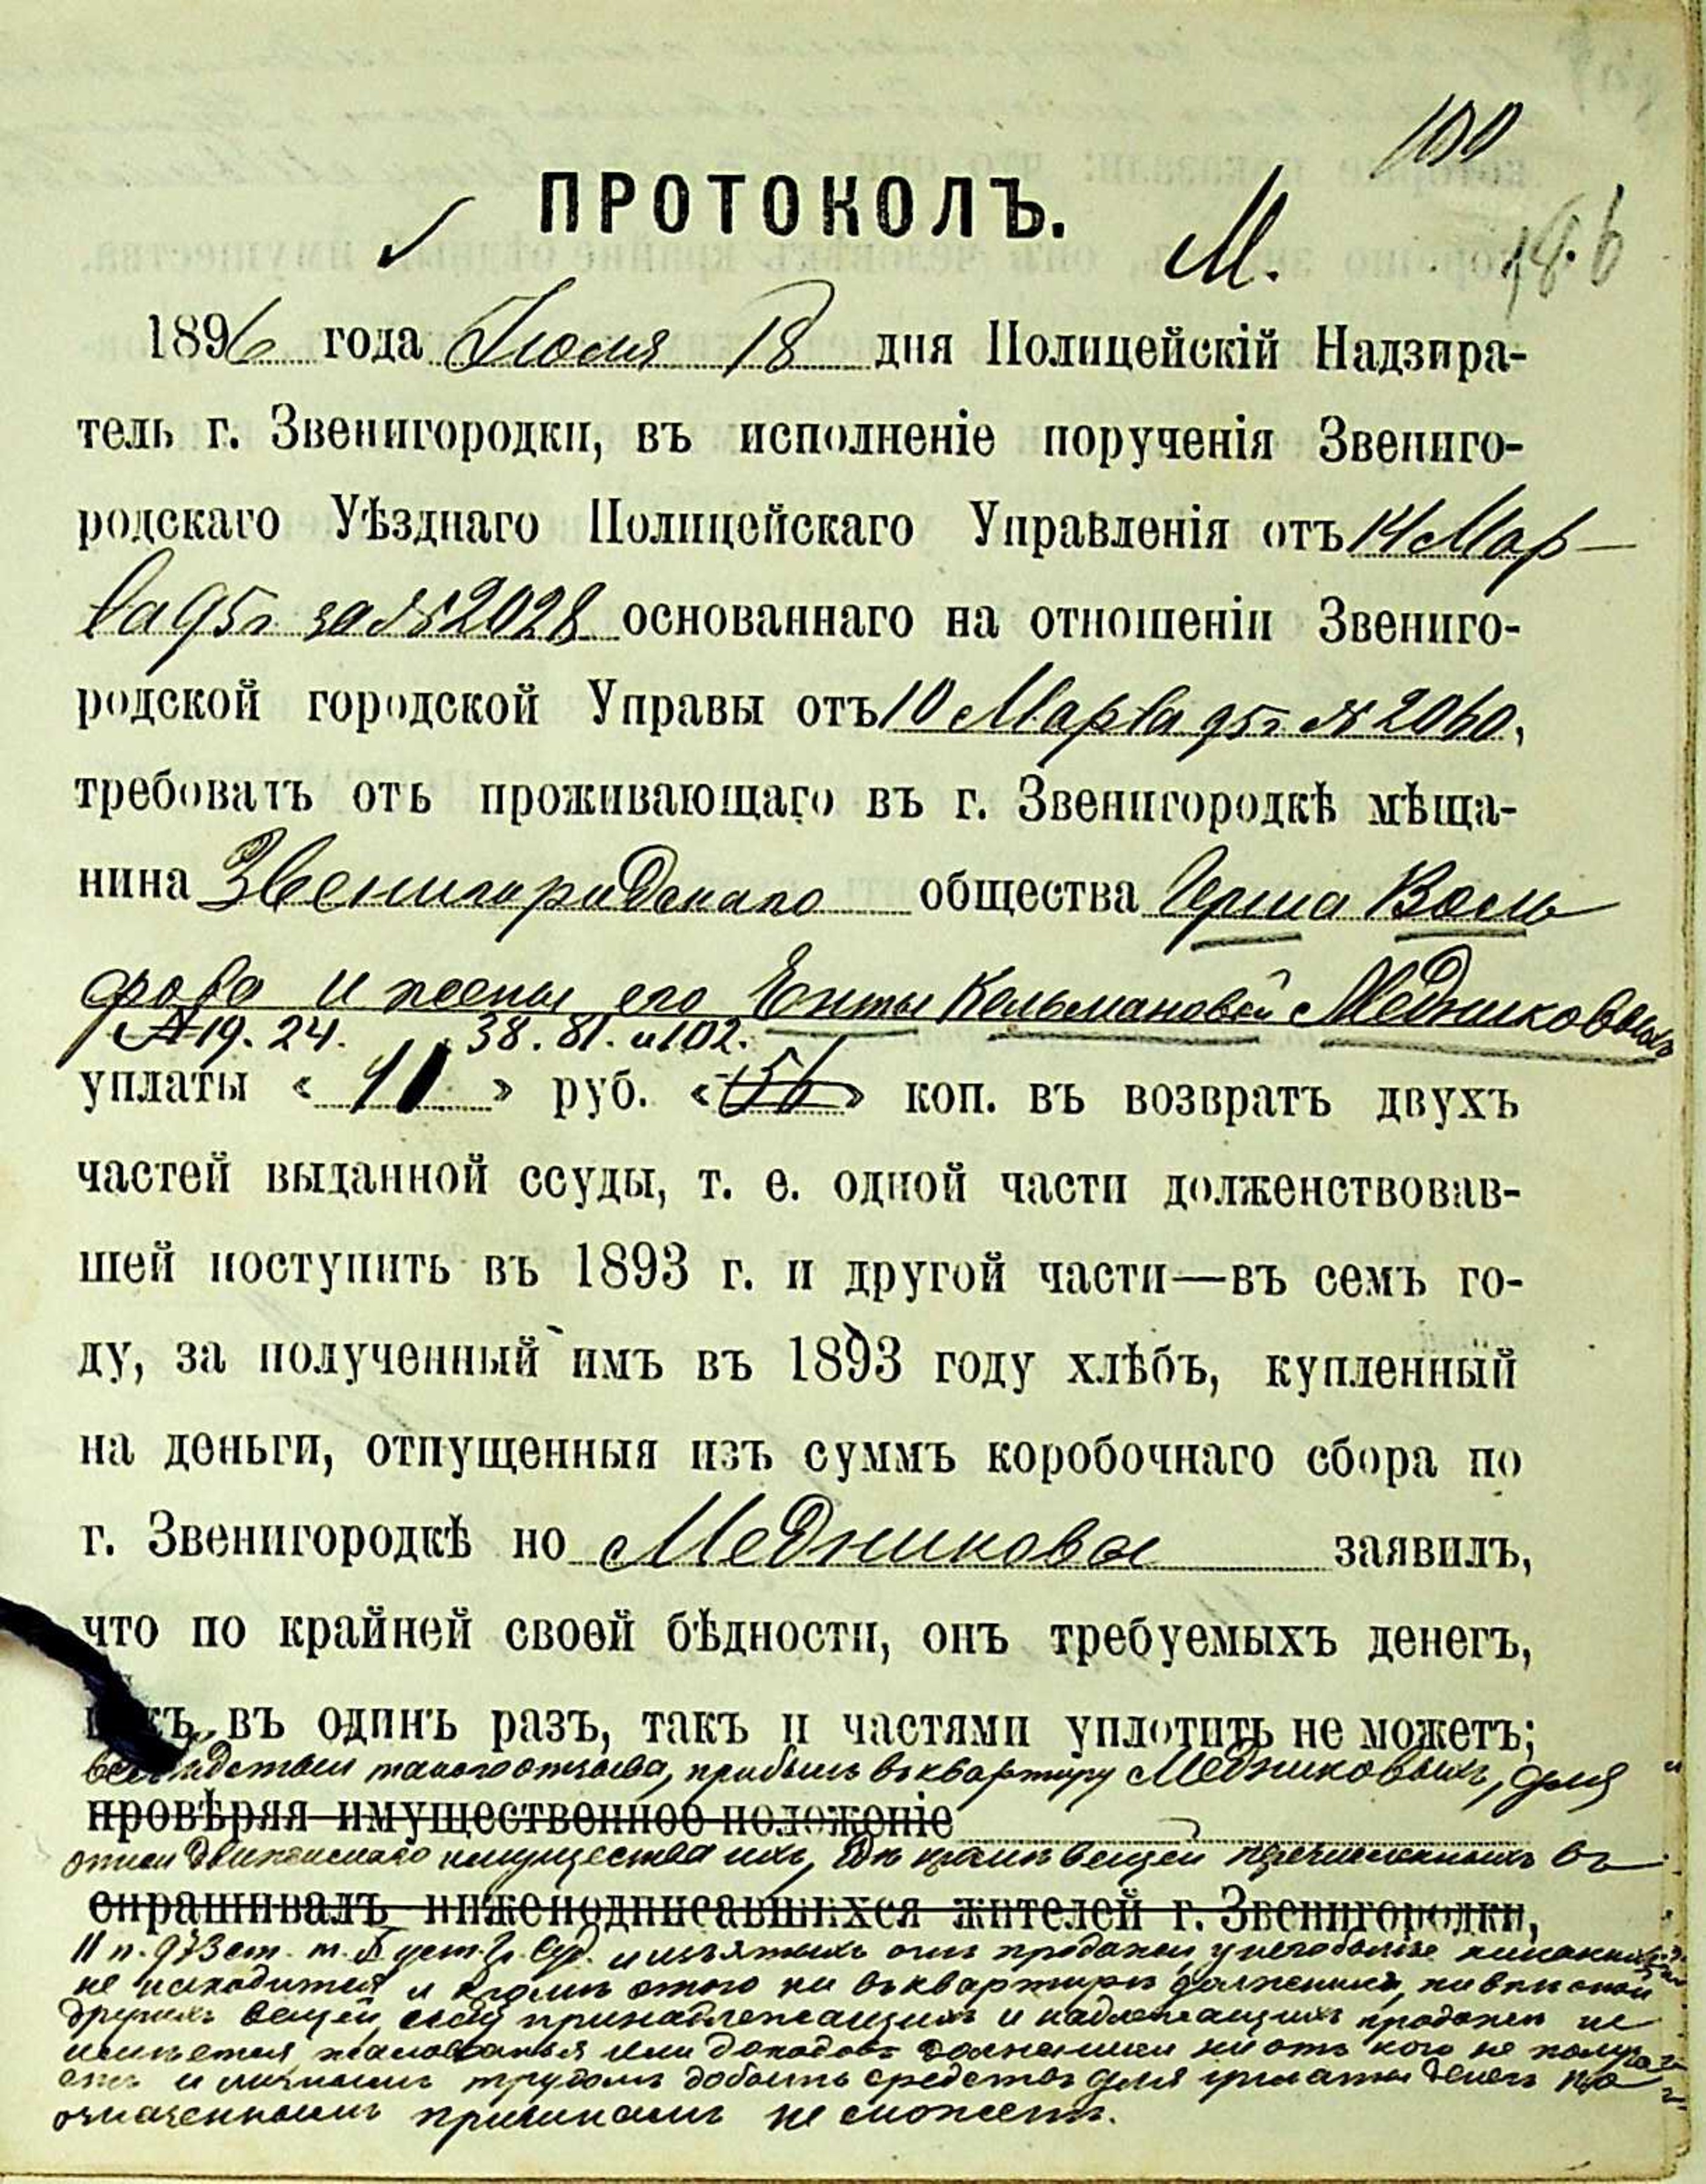 100
ПРОТОКОЛЪ.
М. 196
1896 года Июля 18 дня Полицейскій Надзира-
тель г. Звенигородки, въ исполненіе порученія Звениго-
родскаго Уѣзднаго Полицейскаго Управленія отъ 14 Мар-
та 95 г за № 2028 основаннаго на отношеніи Звениго-
родской городской Управы отъ 10 Марта 95 г № 2060,
требовать отъ проживающаго въ г. Звенигородкѣ мѣща-
нина Звенигородскаго общества Герша Воль
фова и жены его Енты Кельмановой Медниковыхъ
№ 19. 24. 38. 81. и 102.
уплаты « 11 » руб. « 56 » коп. въ возвратъ двухъ
частей выданной ссуды, т. е. одной части долженствовав-
шей поступить въ 1893 г. и другой части—въ семъ го-
ду, за полученный имъ въ 1893 году хлѣбъ, купленный
на деньги, отпущенныя изъ суммъ коробочнаго сбора по
г. Звенигородкѣ но Медниковы заявилъ,
что по крайней своей бѣдности, онъ требуемыхъ денегъ,
какъ въ одинъ разъ, такъ и частями уплотить не можетъ;
вслѣдствіи такого отзыва, прибылъ въ квартиру Медниковыхъ, для
провѣряя имущественное положеніе
описи движимаго имущества ихъ, гдѣ кромѣ вещей перечисленныхъ въ
спрашивалъ нижеподписавшихся жителей г. Звенигородки,
11 п. 973 ст. т. X уст. Гр. Суд. и изъятыхъ отъ продажи, у него болѣе никакихъ
не находится и кромѣ этого ни въ квартирѣ должника, ни внѣ оной
другихъ вещей, ему принадлежащихъ и надлежащихъ продажѣ не
имѣется, жалованья или доходовъ должники ни отъ кого не получа
етъ и личнымъ трудомъ добыть средства для уплаты денегъ по
означеннымъ причинамъ не можетъ.